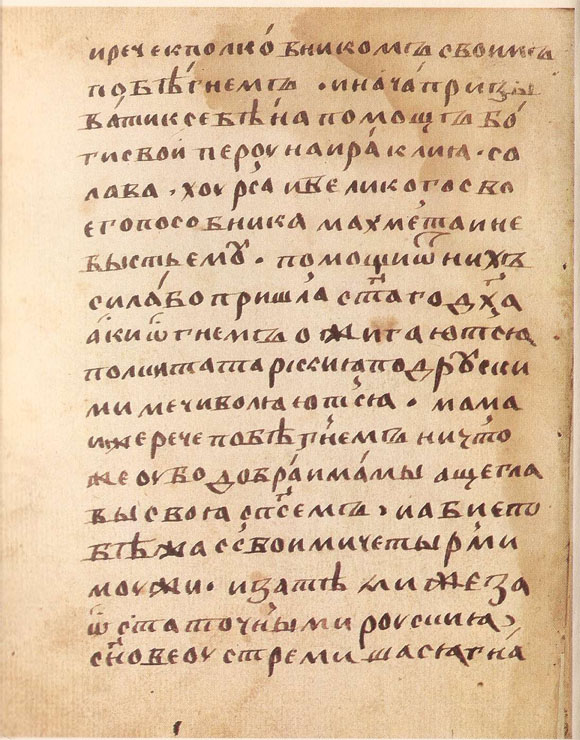 и рече к полко́вникомъ своимъ
побѣ́гнемъ · и нача́ призы
ва́ти к себѣ́ на помощъ бо́
ги свои́ пероуна и ра́клию · со
лава · хоурса и великого сво
его пособника махмета и не
бысть емꙋ · помощи ѿ нихъ
сила́ бо пришла ст҃аго дх҃а
а́ки ѻгнемъ ожигаютсѧ
полци татарскиꙗ под рꙋски
ми мечи волꙗютсѧ · мама
и же рече побѣ́гнемъ ничто
же оубо добра́ има́мы аще гла
вы своꙗ сп҃семъ, и абие по
бѣжа с своими четырми
моужи · и затѣ́ мли же за
ѿстаточными роусциꙗ,
сн҃ове оустремишасѧ гна́